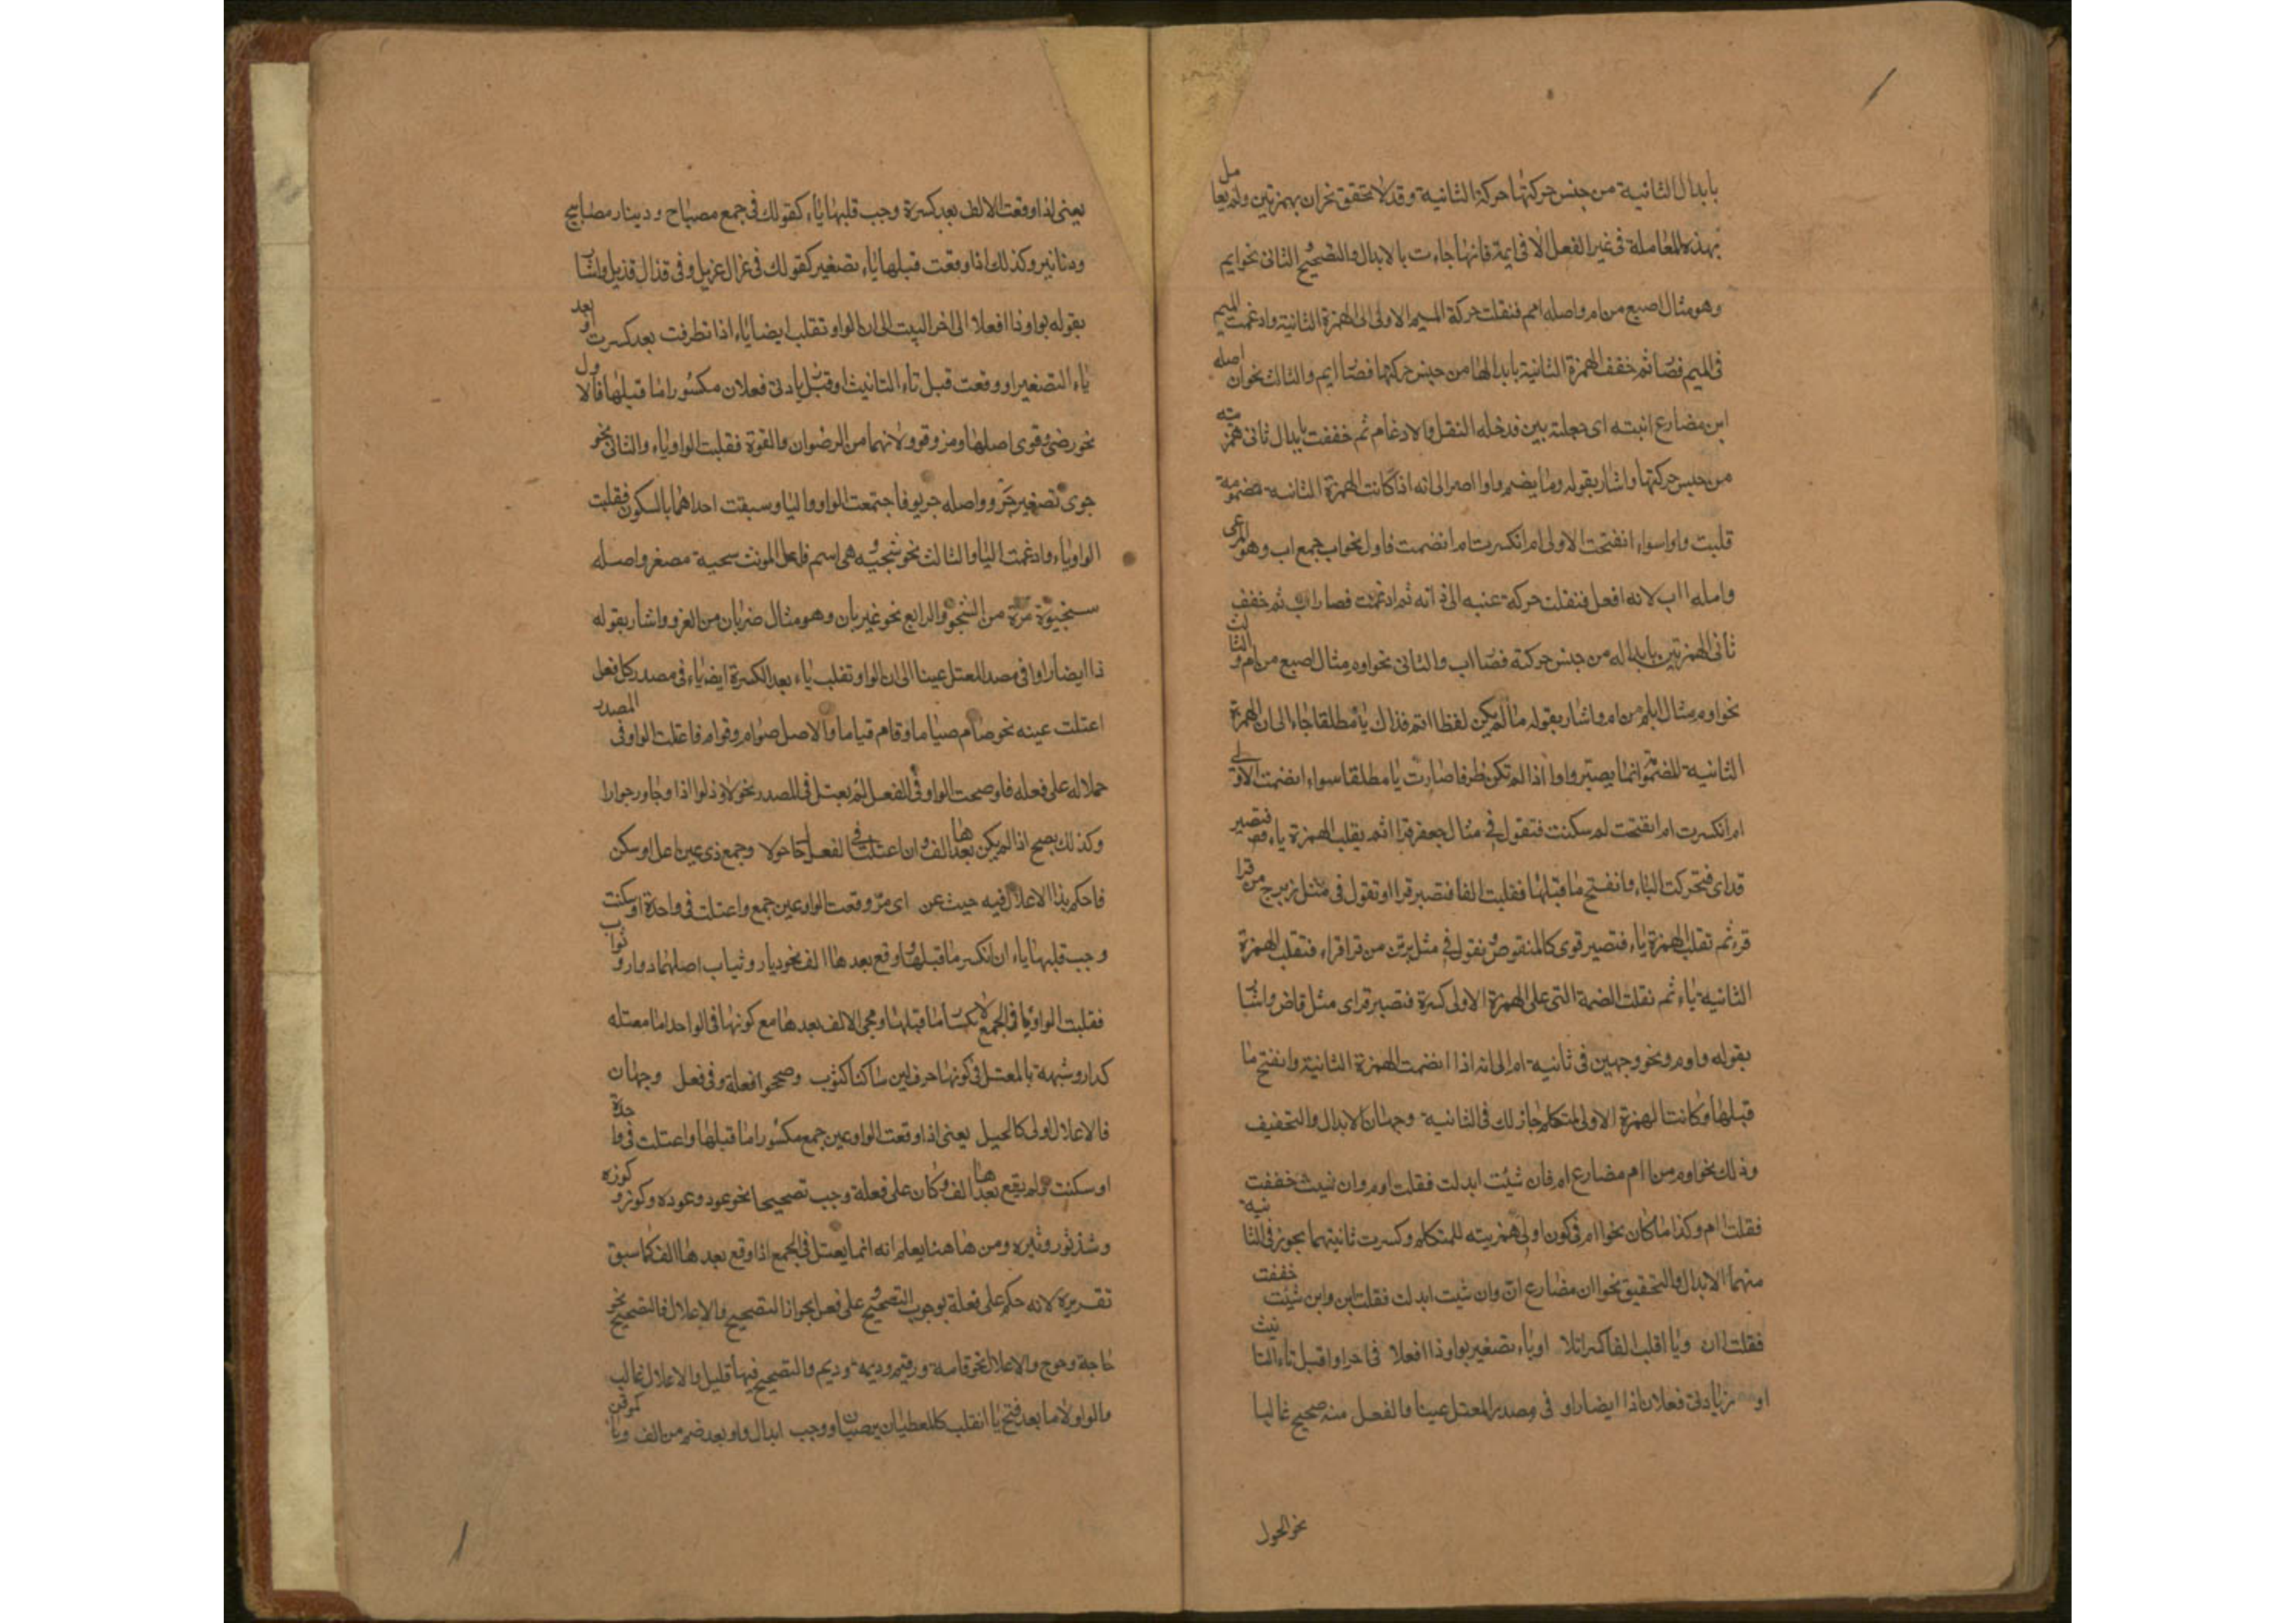 بابدال الثانية من جنس حركتها حركة الثانية وقد لا تحقق نحو ان بهمزتين ولم يعامل
بهذه المعاملة فى غير الفعل الا فى ايمة فانها جاءت بالابدال والتصحيح و الثانى نحو ايم
وهو مثال اصبع من ام واصله اءمم فنقلت حركة الميم الاولى الى الهمزة الثانية وادغمت الميم
فى الميم فصا ثم خفف الهمزة الثانية بابدالها من جنس حركتها فصا ايم والثالث نحو ان اصله
اين مضارع انبته اى جعلته يين فدخله النقل والادغام ثم خففت بابدال ثانى همزته
من جنس حركتها واشار بقوله وما يضم واوا اصر الى انه اذا كانت الهمزة الثانية مضمومة
قلبت واوا سواء انفتحت الاولى ام انكسرت ام انضمت فاول نحو اب جمع اب وهو المرعى
واصله ااب لانه افعل فنقلت حركة عنبه الى فائه ثم ادغمت فصار اب ثم خفف
ثانى الهمزتين بابداله من جنس حركته فصا اب والثانى نحو اوم مثال اصبع من ام والثالث
نحو اوم مثال ابلم من ام واشار بقوله ما لم يكن لفظا اتم فذاك يا مطلقا جاء الى ان الهمزة
الثانية المضمومة انما يصير واوا اذا لم تكن طرفا صارت يا مطلقا سواء انضمت الاولى
ام انكسرت ام انفتحت ام سكنت فتقول فى مثال جعفر قراا ثم يقلب الهمزة ياء فتصير
قراى فتحركت الياء وانفتح ما قبلها فقلبت الفا فتصير قراا وتقول فى مثل زبرج من قرا
قرء ثم تقلب الهمزة ياء فتصير قرئى كالمنقوص و تقول فى مثل برثن من قرا قراء فتقلب الهمزة
الثانية ياء ثم نقلت الضمة التى على الهمزة الاولى كسرة فتصير قراى مثل قاض واشار
بقوله واوم ونحو وجهين فى ثانية ام الى انه اذا انضمت الهمزة الثانية وانفتح ما
قبلها وكانت الهمزة الاولى للمتكلم جاز لك فى الثانية وجهان الابدال والتخفيف
وذلك نحو اوم من اام مضارع ام فان شئت ابدلت فقلت اوم وان شيت خففت
فقلت اام وكذا ما كان نحو اام فى كون اولى همزتيه للمتكلم وكسرت ثانيتهما يجوز فى الثانية
منهما الابدال والتحقيق نحو اان مضارع ان وان شيت ابدلت فقلت اين وان شئت خففت
فقلت اان ويا اقلب الفا كسرا تلا او ياء تصغير بواو ذا افعلا فى اخر او اقبل تاء التانيث
او زيادتى فعلان ذا ايضا راو فى مصدر المعتل عينا والفعل منه صحيح غالبا
نحو الحول
يعنى اذا وقعت الالف بعد كسرة وجب قلبها ياء كقولك فى جمع مصباح ودينار مصابيح
ودنانير وكذلك اذا وقعت قبلها ياء تصغير كقولك فى غزال غزيل وفى قذال قذيل واشار
بقوله بواو ذا افعلا الى اخر البيت الى ان الواو تقلب ايضا ياء اذا تطرفت بعد كسرت او بعد
ياء التصغير او وقعت قبل تاء التانيث او قبل يادتى فعلان مكسورا ما قبلها فالاول
نحو رضى وقوى اصلهما ومز وقوو لانهما من الرضوان والقوة فقلبت الواو ياء والثانى نحو
جرى تصغير جرو واصله جريو فاجتمعت الواو واليا وسبقت احداهما بالسكون فقلبت
الواو ياء وادغمت اليا والثالث نحو شجيه وهى اسم فاعل المونث سحية مصغر واصله
سنجيوة مرة من الشجو والرابع نحو غيريان وهو مثال ضربان من الغزو واشار بقوله
ذا ايضا راوا فى مصدر المعتل عينا الى ان الواو تقلب ياء بعد الكسرة ايضا ياء فى مصدر كل فعل
اعتلت عينه نحو صام صياما وقام قياما والاصل صوام وقوام فاعلت الواو فى المصدر
حملا له على فعله فلو صحت الواو فى الفعل لم يعتل فى المصدر نحو لاوذ لواذا وجاور جوارا
وكذلك يصح اذا لم يكن بعدها الف وان اعتلت فى الفعل حا حولا وجمع ذى عين اعل او سكن
فاحكم بذا الاعلال فيه حيث عن اى مر وقعت الواو عين جمع واعتلت فى واحدة او سكنت
وجب قلبها ياء ان انكسر ما قبلها ووقع بعدها الف نحو ديار وثياب اصلهما دوار وثواب
فقلبت الواو يا فى الجمع لانكسار ما قبلها ومجى الالف بعدها مع كونها فى الواحد اما معتله
كدار وشبهة بالمعتل فى كونها حرف لين ساكنا كثوب وصححوا فعلة وفى فعل وجهان
فالاعلال اولى كالحيل يعنى اذا وقعت الواو عين جمع مكسورا ما قبلها واعتلت فى واحدة
او سكنت ولم يقع بعدها الف وكان على فعلة وجب تصحيحا نحو عود وعوده وكوز وكوزه
وشذ ثور وثيره ومن هاهنا يعلم انه انما يعتل فى الجمع اذا وقع بعدها الف كما سبق
تقريره لانه حكم على فعلة بوجوب التصحيح و على فعل بجواز التصحيح والاعلال فالتصحيح نحو
حاجة وحوج والاعلال نحو قامة وقيم وديمه وديم والتصحيح فيها قليل والاعلال غالب
والواو لاما بعد فتح يا انقلب كالمعطيان يرضيان ووجب ابدال واو بعد ضم من الف ويا كموقن